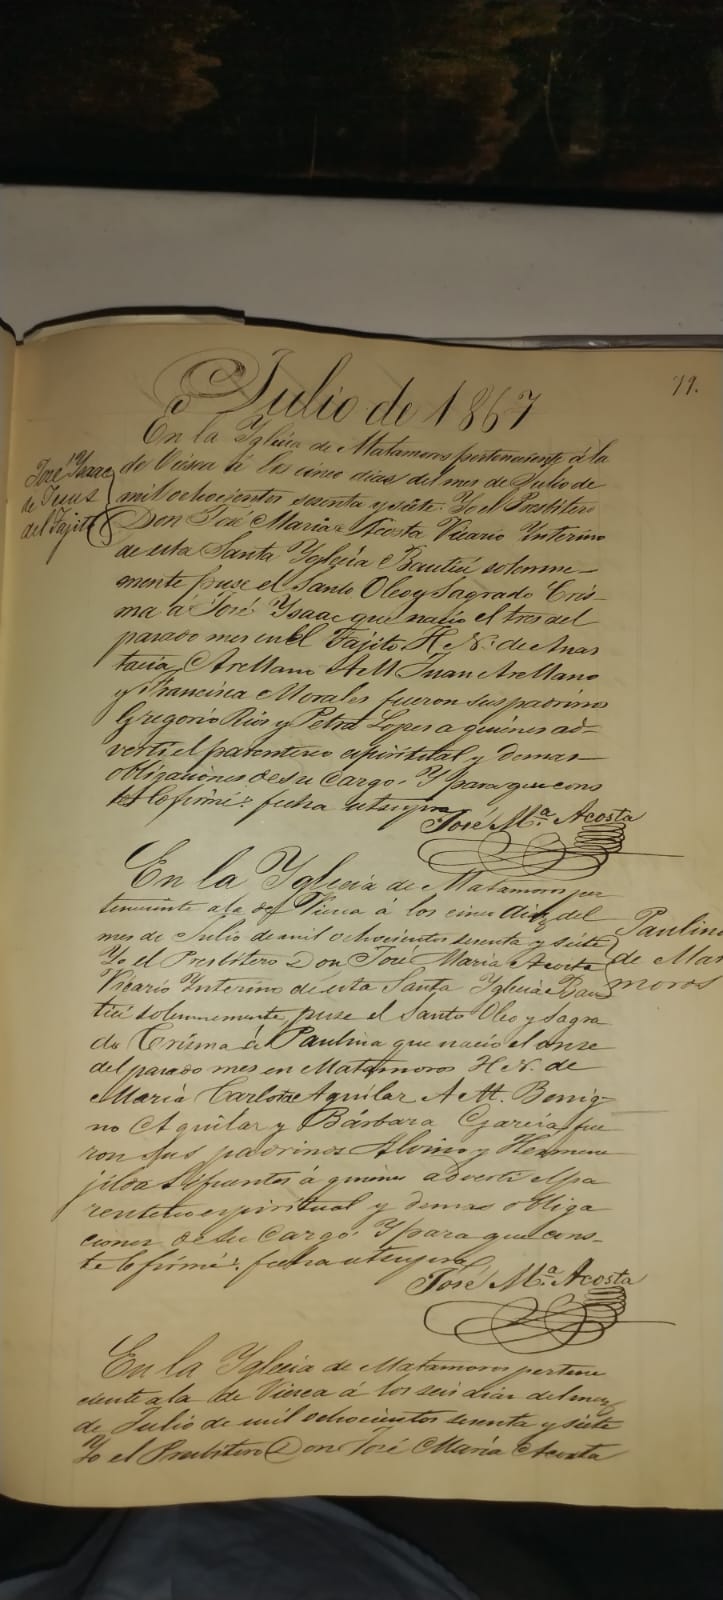 79.
Julio de 1867
José Ysaac
de Jesus
del Fajito
En la Yglecia de Matamoros perteneciente á la
de Viesca á los cinco dias del mes de Julio de
mil ochocientos sesenta y siete. Yo el Presbitero
Don José Maria Acosta Vicario Ynterino
de esta Santa Yglecia Bauticé solemne-
mente puse el Santo Oleo y Sagrado Cris-
ma á José Ysaac que nació el tres del
pasado mes en El Fajito H. N. de Anas
tacia Arellano A M Juan Arellano
y Francisca Morales fueron sus padrinos
Gregorio Rios y Petra Lopes a quienes ad-
verti el parentesco espiritual y demas
obligaciones de su cargo. Y para que cons
te lo firmé. fecha utsupra
José Ma. Acosta
Paulina
de Mata
moros
En la Yglecia de Matamoros per
teneciente a la de Viesca á los cinco dias del
mes de Julio de mil ochocientos sesenta y siete
Yo el Presbitero Don José Maria Acosta
Vicario Ynterino de esta Santa Yglecia Bau
ticé solemnemente, puse el Santo Oleo y Sagra
do Crisma á Paulina que nació el onse
del pasado mes en Matamoros H. N. de
Maria Carlota Aguilar A. M. Benig-
no Aguilar y Bárbara Garcia fue
ron sus padrinos Albino y Hermene
jilda Sifuentes á quienes adverti el pa
rentesco espiritual y demas obliga
ciones de su cargo. Y para que cons-
te lo firmé. fecha utsupra
José Ma. Acosta
En la Yglecia de Matamoros pertene
ciente a la de Viesca á los seis dias del mes
de Julio de mil ochocientos sesenta y siete
Yo el Presbitero Don José Maria Acosta